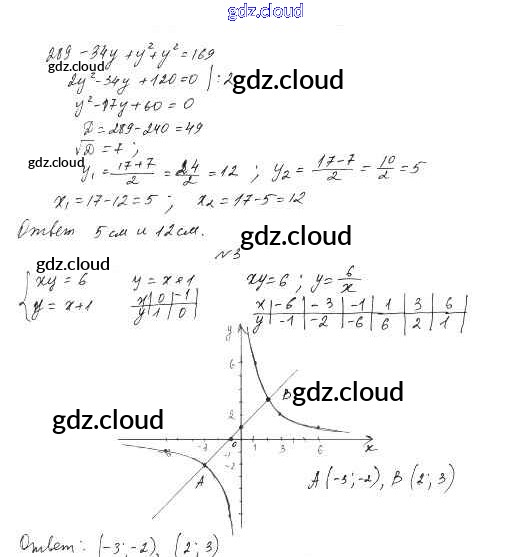 gdz.cloud
289 - 34y + y² + y² = 169
gdz.cloud
2y² - 34y + 120 = 0 | : 2
gdz.cloud
y² - 17y + 60 = 0
D = 289 - 240 = 49
√D = 7 ;
gdz.cloud
y₁ = (17+7)/2 = 24/2 = 12 ; y₂ = (17-7)/2 = 10/2 = 5
x₁ = 17 - 12 = 5 ; x₂ = 17 - 5 = 12
Ответ 5 см и 12 см.
gdz.cloud
№3
gdz.cloud
{ xy = 6 y = x + 1 xy = 6 ; y = 6/x
y = x + 1 x | 0 | -1 x | -6 | -3 | -1 | 1 | 3 | 6
gdz.cloud
y | 1 | 0 y | -1 | -2 | -6 | 6 | 2 | 1
y
6
B
gdz.cloud
gdz.cloud
2
-2 0 1 3 6 x
-2
A
A (-3; -2), B (2; 3)
gdz.cloud
Ответ: (-3; -2), (2; 3)